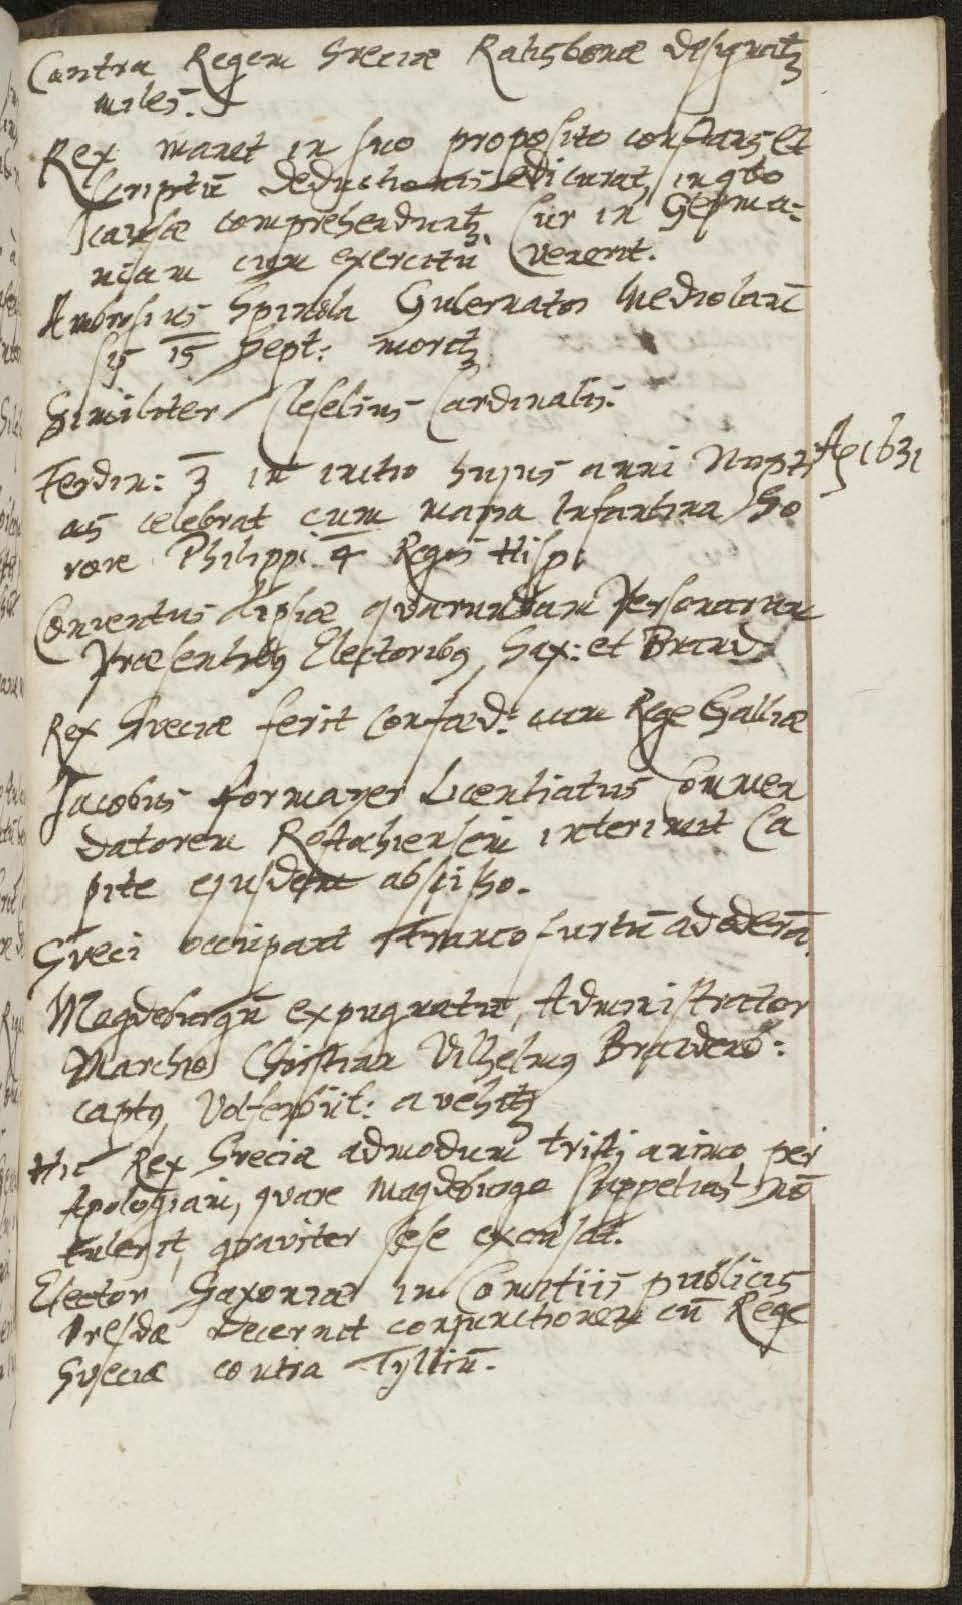 Contra Regem Sveciæ Ratisbonæ designatʒ
miles.
Rex manet in suo proposito constans Et
scriptū Deductionis edi curat, in qvo
causæ comprehendunt̃, Cur in Germa=
niam cum exercitū venerit.
Ambrosius Spinola Gubernator Mediolanē
sis 15 Sept: morit̃
Similiter Cleselius Cardinalis.
Ferdin: 3 in initio hujus anni Nupti
Aõ 1631
as celebrat cum maria Infantina So
rore Philippi 4 Regis Hisp:
Conventus Lipsiæ qvarundam Personarum
Præsentibꝰ Electoribꝰ, Sax: et Brand
Rex Sveciæ ferit Confœd: cum Rege Galliæ
Jacobus formayer Licentiatus Commen
datorem Rostochiensem interimit Ca
pite ejusdem abscisso.
Sveci occupant Francofurtū ad oderā.
Magdeburgū expugnatū, Administrator
Marchio Christian Vilhelmꝰ Brandenb:
captꝰ, Volferbüt: avehit̃
Hic Rex Sveciæ admodum tristi animo per
Apologiam, qvare Magdeburgo suppetias nō
tulerit, graviter sese excusat.
Elector Saxoniæ in Comitiis publicis
Dresdæ decernit conjunctionem cū Rege
Sveciæ contra Tyllium.